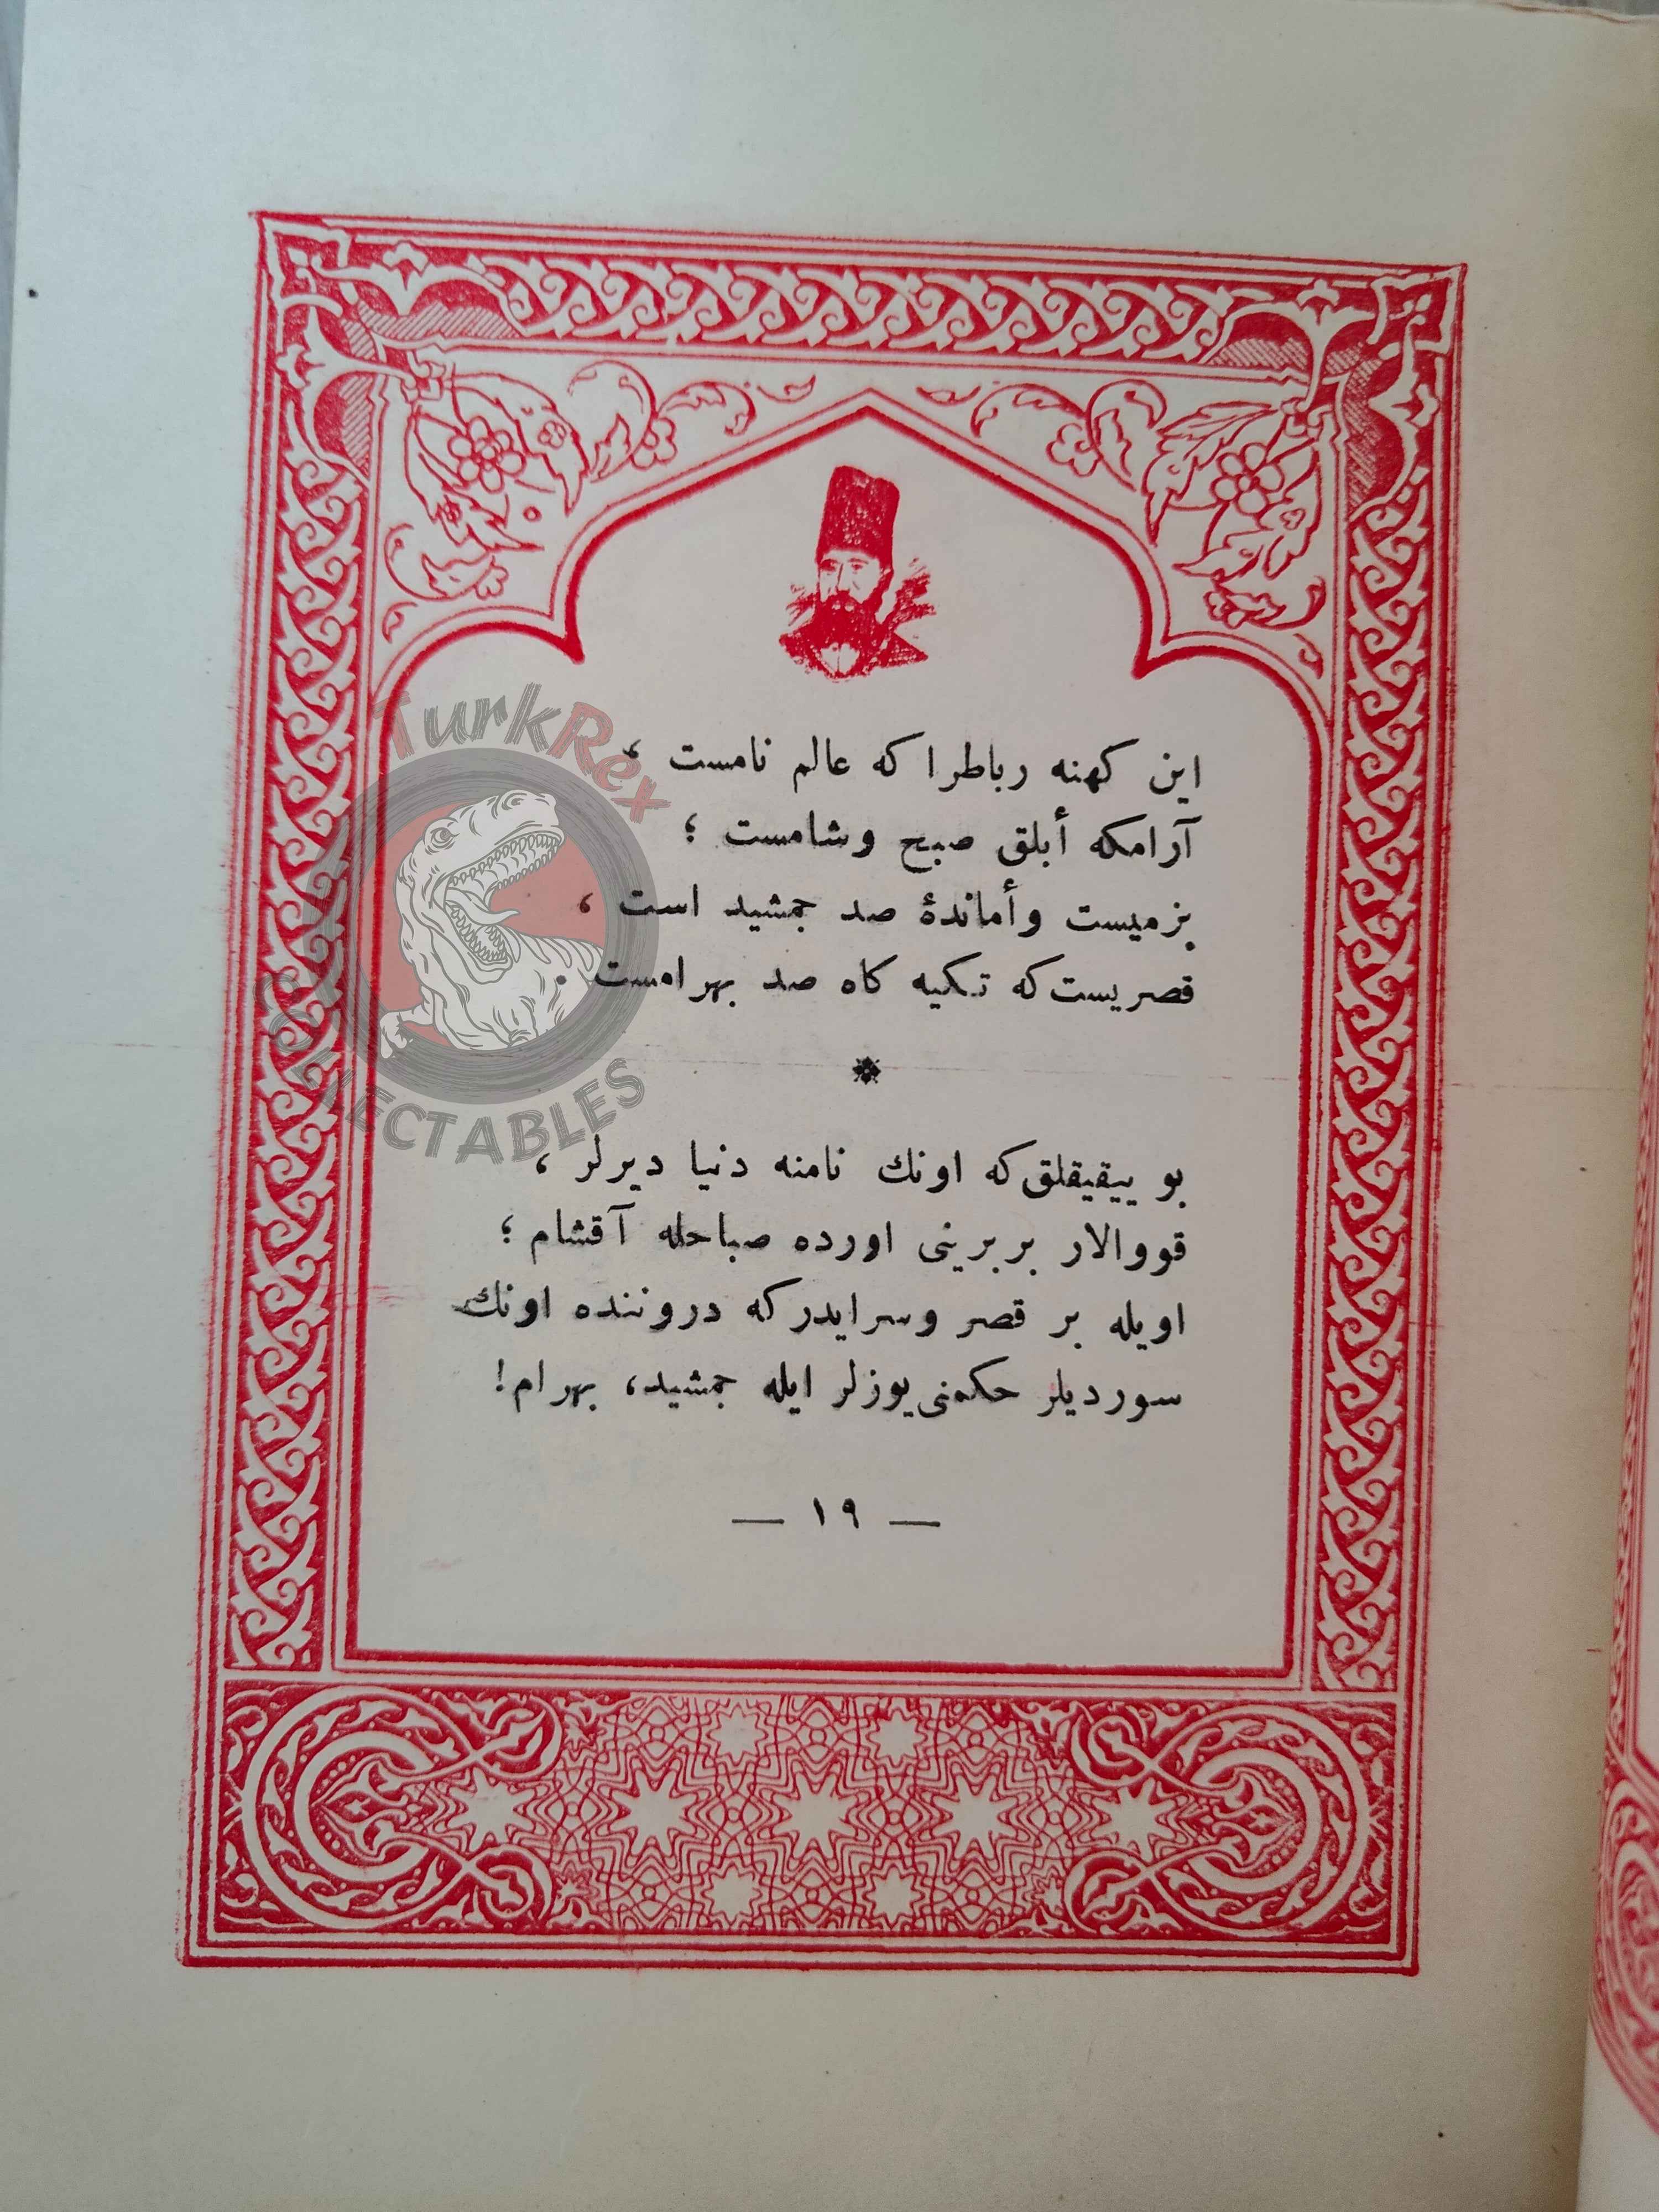 TurkRex
COLLECTABLES
این کهنه رباطرا که عالم نامست ،
آرامکه أبلق صبح وشامست ؛
بزمیست وأماندۀ صد جمشید است ،
قصریست که تکیه کاه صد بهرامست .
بو ییقیقلق که اونك نامنه دنیا دیرلر ،
قووالار بربرینی اورده صباحله آقشام ؛
اویله بر قصر وسرایدر که دروننده اونك
سوردیلر حکمنی یوزلر ایله جمشید، بهرام!
— ١٩ —